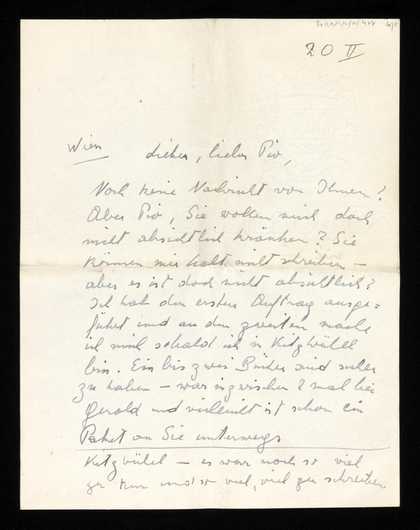 20 II
Wien lieber, lieber Pio,
Noch keine Nachricht von Ihnen?
Aber Pio, Sie wollen mich doch
nicht absichtlich kränken? Sie
können mir halt nicht schreiben –
aber es ist doch nicht absichtlich?
Ich hab den ersten Auftrag ausge=
führt und an den zweiten mache
ich mich sobald ich in Kitzbühel
bin. Ein bis zwei Bücher sind
zu haben – war inzwischen 2 mal bei
Gerold und vielleicht ist schon ein
Paket an Sie unterwegs
Kitzbühel – es war noch so viel
zu tun und so viel, viel zu schreiben